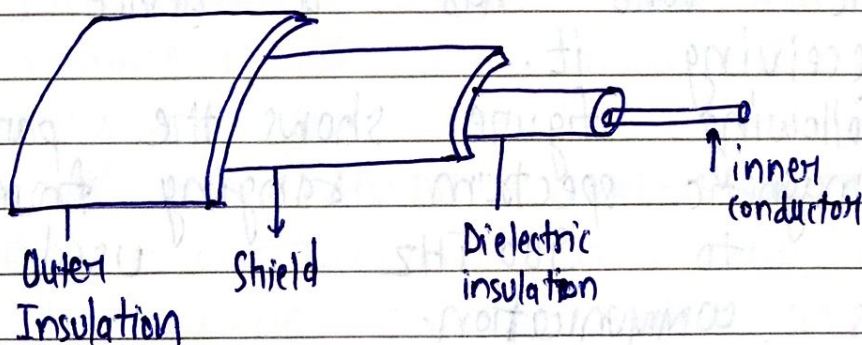 Outer
Insulation
Shield
Dielectric
insulation
inner
conductor